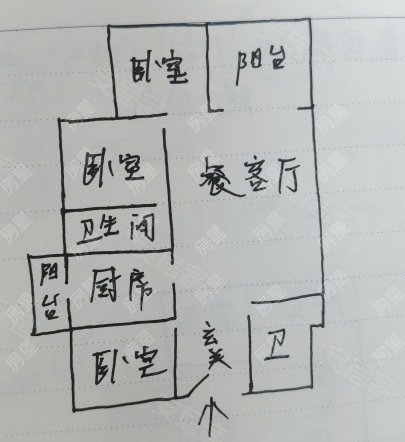 卧室
阳台
卧室
餐客厅
卫生间
阳台
厨房
卧室
玄关
卫